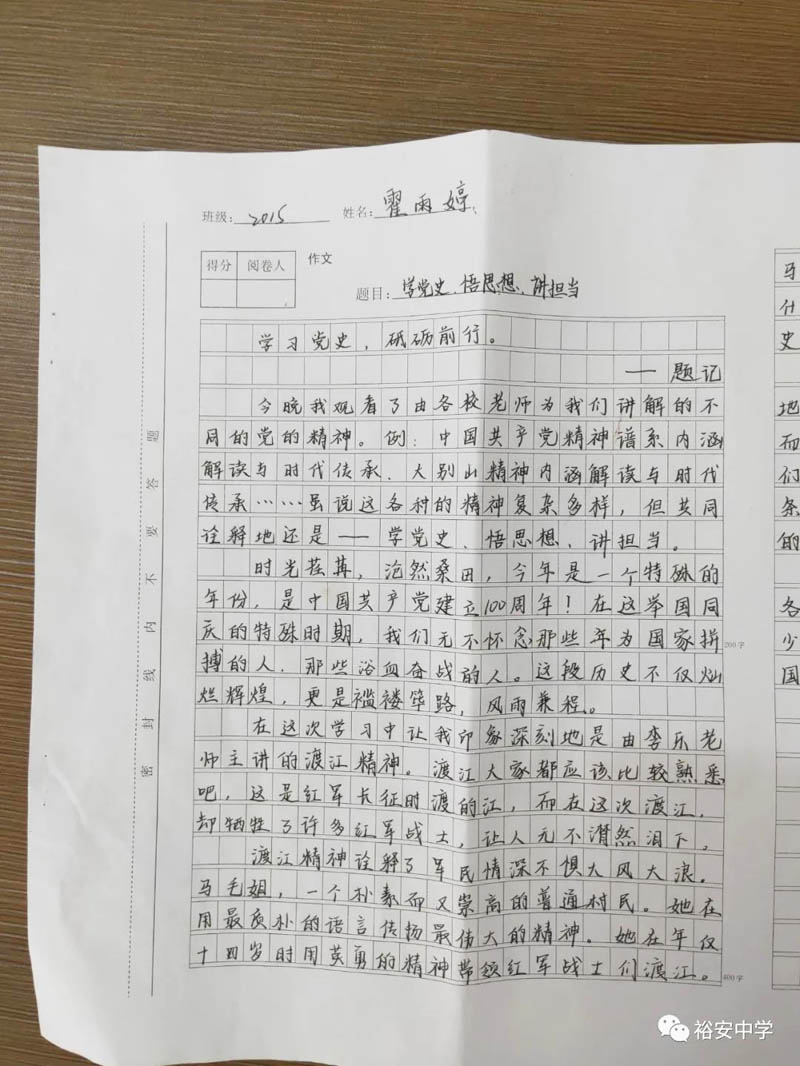 班级：2015 姓名：瞿雨婷
得分 阅卷人 作文
题目：学党史、悟思想、讲担当
学习党史，砥砺前行。
——题记
今晚我观看了由各校老师为我们讲解的不
同的党的精神。例：中国共产党精神谱系内涵
解读与时代传承、大别山精神内涵解读与时代
传承……虽说这各种的精神复杂多样，但共同
诠释地还是——学党史、悟思想、讲担当。
时光荏苒，沧然桑田，今年是一个特殊的
年份，是中国共产党建立100周年！在这举国同
庆的特殊时期，我们无不怀念那些年为国家拼
200字
搏的人，那些浴血奋战的人。这段历史不仅灿
烂辉煌，更是褴褛筚路，风雨兼程。
在这次学习中让我印象深刻地是由李乐老
师主讲的渡江精神。渡江大家都应该比较熟悉
吧，这是红军长征时渡的江，而在这次渡江，
却牺牲了许多红军战士，让人无不潸然泪下。
渡江精神诠释了军民情深不惧大风大浪。
马毛姐，一个朴素而又崇高的普通村民。她在
用最质朴的语言传扬最伟大的精神。她在年仅
十四岁时用英勇的精神带领红军战士们渡江。
400字
密封线内不要答题
马
什
史
地
而
们
条
的
各
少
国
裕安中学